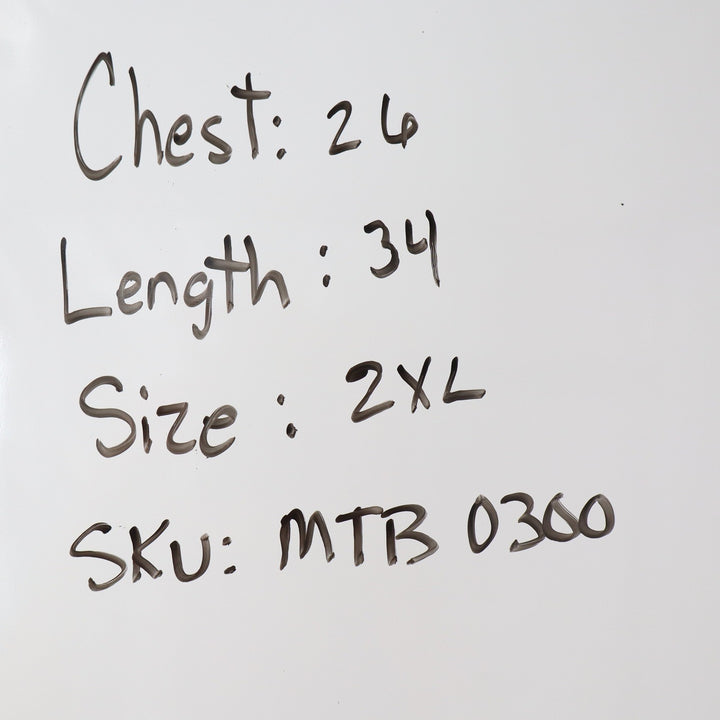 Chest: 26
Length : 34
Size : 2XL
SKU: MTB 0300